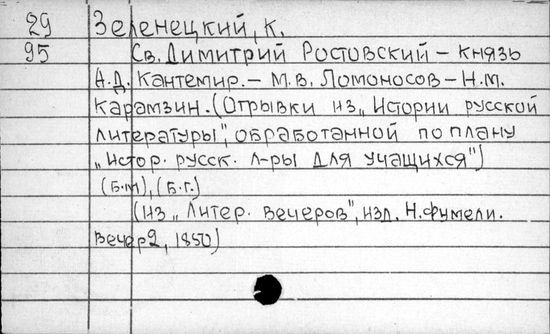 29 Зеленецкий, К.
95 Св. Димитрий Ростовский – князь
А.Д. Кантемир. – М.В. Ломоносов – Н.М.
Карамзин. (Отрывки из „Истории русской
литературы", обработанной по плану
„Истор. русск. л-ры для учащихся")
(Б.м), (Б.г.)
(Из „Литер. вечеров", изд. Н. Фумели.
Вечер 2, 1850)